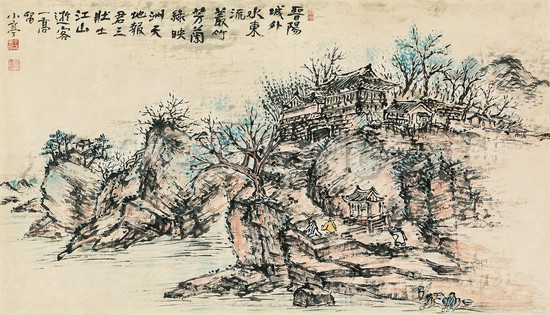 晋陽
城外
水東
流
叢竹
芳蘭
綠映
洲天
地報
君三
壯士
江山
遊客
一高
小亭